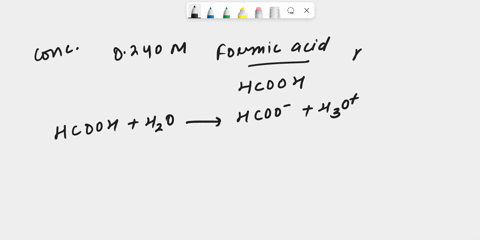 conc. 0.240 M Formic acid
HCOOH
HCOOH + H2O ⟶ HCOO⁻ + H3O+